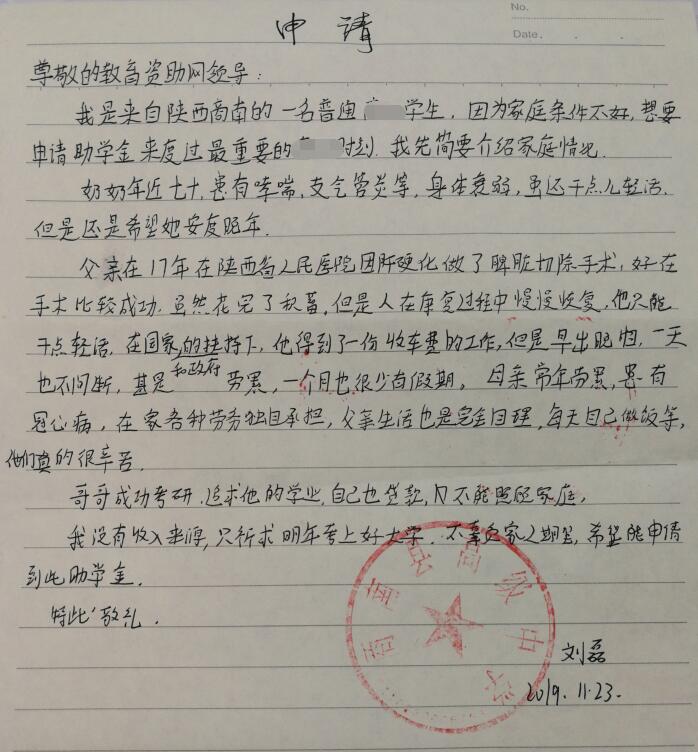 No.
Date.
申 请
尊敬的教育资助网领导：
我是来自陕西商南的一名普通学生，因为家庭条件不好，想要
申请助学金来度过最重要的时刻．我先简要介绍家庭情况．
奶奶年近七十，患有哮喘，支气管炎等，身体衰弱，虽还干点儿轻活．
但是还是希望她安度晚年．
父亲在17年在陕西省人民医院因肝硬化做了脾脏切除手术，好在
手术比较成功．虽然花完了积蓄，但是人在康复过程中慢慢恢复，他只能
干点轻活．在国家和政府的扶持下，他得到了一份收车费的工作，但是早出晚归，一天
也不间断，甚是劳累，一个月也很少有假期． 母亲常年劳累，患有
冠心病，在家各种劳务独自承担，父亲生活也是完全自理，每天自己做饭等，
他们真的很辛苦．
哥哥成功考研．追求他的学业，自己也贷款，只不能照顾家庭，
我没有收入来源，只祈求明年考上好大学．不辜负家人期望，希望能申请
到此助学金．
特此，敬礼．
商南县高级中学
刘磊
2019.11.23.